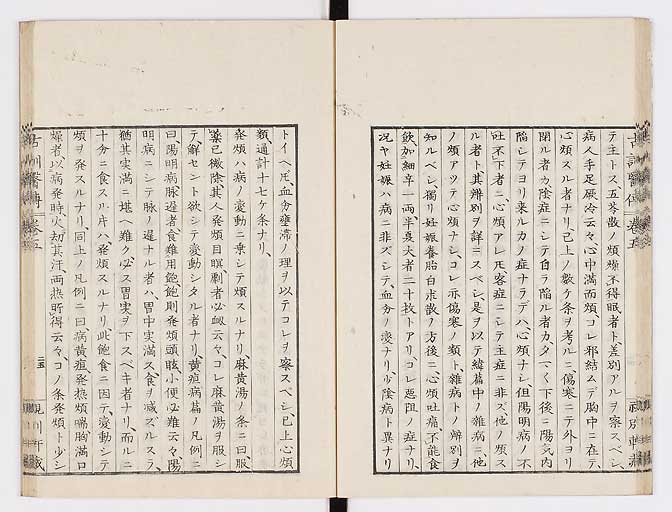 テ主トス、五苓散ノ煩燥不得眠者ト、差別アルヲ察スベシ、
病人手足厥冷云々、心中満而煩、コレ邪結ムデ胸中ニ在テ、
心煩スル者ナリ、已上ノ数ケ条ヲ考ルニ、傷寒ニテ外ヨリ
閉ル者カ、陰症ニシテ自ラ陥ル者カ、タ一ク下後ニ陽気内
陥シテヨリ来ルカノ症ナラデハ、心煩ナシ、但陽明病ノ不
吐不下者ニ、心煩アレ𪜈、客症ニシテ主症ニ非ズ、他ノ煩ス
ル者ト、其辨別ヲ詳ニスベシ、是ヲ以テ緯篇中ノ雜病ニ、他
ノ煩アツテ心煩ナシ、コレ亦傷寒ノ類ト、雜病トノ辨別ヲ
知ルベシ、獨リ妊娠養胎白朮散ノ方後ニ、心煩吐痛、不能食
飲、加細辛一両半夏大者二十枚トアリ、コレ悪阻ノ症ナリ、
况ヤ妊娠ハ病ニ非ズシテ、血分ノ変ナリ、少陰病ト異ナリ
トイヘ𪜈、血分壅滞ノ理ヲ以テコレヲ察スベシ、已上心煩
類通計十七ケ条ナリ、
発煩ハ病ノ変動ニ乗シテ煩スルナリ、麻黄湯ノ条ニ曰、服
薬已微除、其人発煩目瞑、劇者必衂云々、コレ麻黄湯ヲ服シ
テ解セント欲シテ変動シタル者ナリ、黄疸病篇ノ凡例ニ
曰、陽明病脉遅者、食難用飽、飽則発煩頭眩、小便必難云々、陽
明病ニシテ脉ノ遅ナル者ハ、胃中実満ス、食ヲ减ズルスラ、
猶其実満ニ堪ヘ難ク、必ス胃実ヲ下スベキ者ナリ、而ルニ
十分ニ食スル片ハ発煩スルナリ、此飽食ニ因テ変動シテ
煩ヲ発スルナリ、同上ノ凡例ニ曰、病黄疸、発熱煩喘、胸満口
燥者、以病発時、火劫其汗、両熱所得云々、コノ条発煩ト少シ
古訓醫傳 巻五